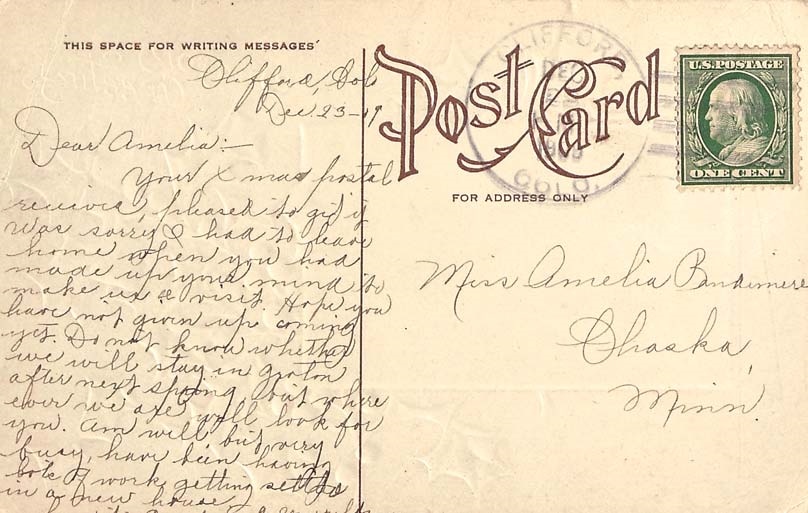 THIS SPACE FOR WRITING MESSAGES
Clifford, Colo
Dec 23-19
Dear Amelia:-
Your Xmas postal
received, pleased to git it
Was sorry I had to leave
home when you had
made up your mind to
make us a visit Hope you
have not given up coming
yet. Do not know whether
we will stay in Groton
after next spring but where
ever we are will look for
you. Am well but very
busy, have been having
lots of work getting settled
in a new house
Post Card
FOR ADDRESS ONLY
CLIFFORD
DEC
COLO.
U.S. POSTAGE
ONE CENT
Miss Amelia
Chaska,
Minn